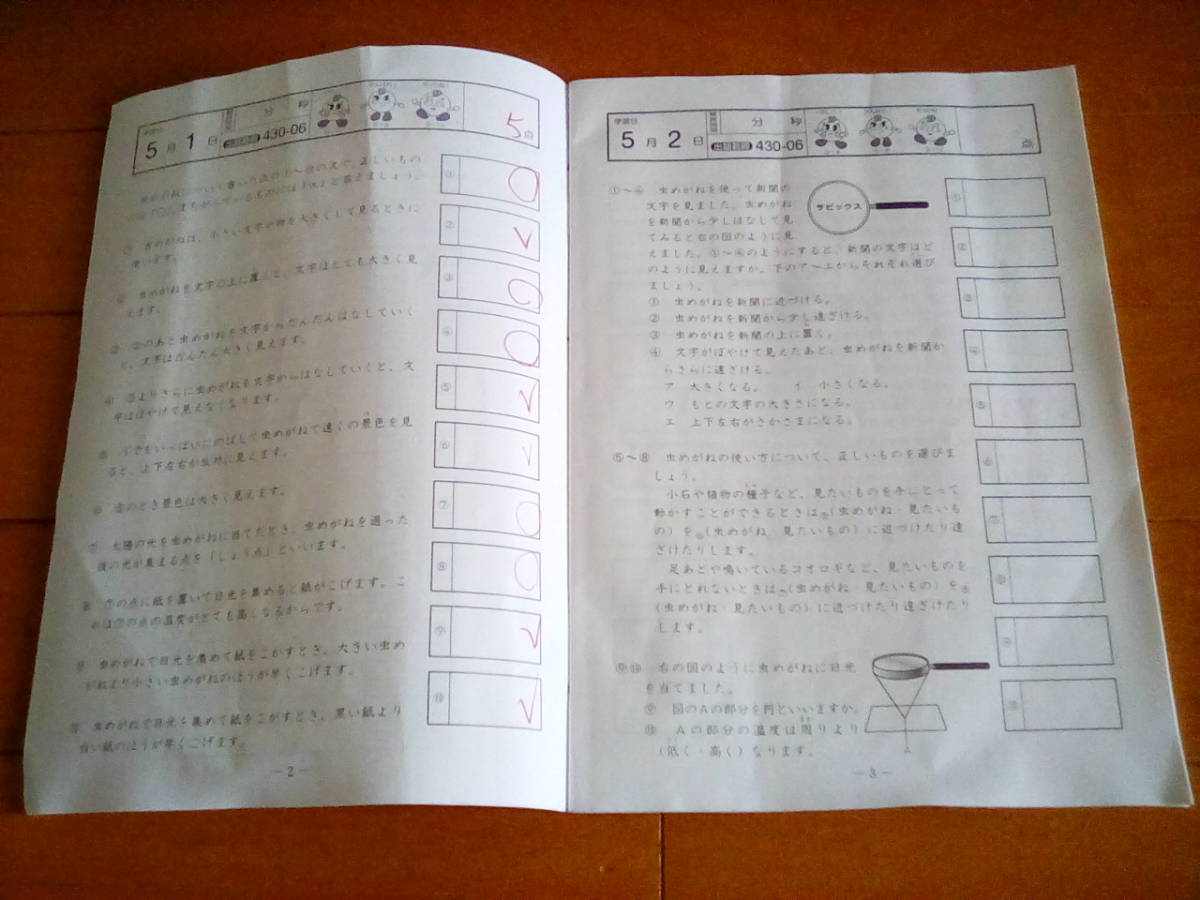 学習日
5月1日
分 秒
出題範囲 430-06
5点
虫めがねについて書いた次の①〜⑩の文で、正しいもの
には「○」、まちがっているものには「×」と答えましょう。
① 虫めがねは、小さい文字や物を大きくして見るときに
使います。
② 虫めがねを文字の上に置くと、文字はとても大きく見
えます。
③ ②のあと虫めがねを文字からだんだんはなしていく
と、文字はだんだん大きく見えます。
④ ③よりさらに虫めがねを文字からはなしていくと、文
字はぼやけて見えなくなります。
⑤ うでをいっぱいにのばして虫めがねで遠くの景色を見
ると、上下左右が反対に見えます。
⑥ ⑤のとき景色は大きく見えます。
⑦ 太陽の光を虫めがねに当てたとき、虫めがねを通った
後の光が集まる点を「しょう点」といいます。
⑧ ⑦の点に紙を置いて日光を集めると紙がこげます。こ
れは⑦の点の温度がとても高くなるからです。
⑨ 虫めがねで日光を集めて紙をこがすとき、大きい虫め
がねより小さい虫めがねのほうが早くこげます。
⑩ 虫めがねで日光を集めて紙をこがすとき、黒い紙より
白い紙のほうが早くこげます。
①
②
③
④
⑤
⑥
⑦
⑧
⑨
⑩
―2―
学習日
5月2日
分 秒
出題範囲 430-06
点
①〜④ 虫めがねを使って新聞の
文字を見ました。虫めがね
を新聞から少しはなして見
てみると右の図のように見
えました。①〜④のようにすると、新聞の文字はど
のように見えますか。下のア〜エからそれぞれ選び
ましょう。
サピックス
① 虫めがねを新聞に近づける。
② 虫めがねを新聞から少し遠ざける。
③ 虫めがねを新聞の上に置く。
④ 文字がぼやけて見えたあと、虫めがねを新聞か
らさらに遠ざける。
ア 大きくなる。 イ 小さくなる。
ウ もとの文字の大きさになる。
エ 上下左右がさかさまになる。
⑤〜⑧ 虫めがねの使い方について、正しいものを選びま
しょう。
小石や植物の種子など、見たいものを手にとって
動かすことができるときは⑤(虫めがね・見たいも
の)を⑥(虫めがね・見たいもの)に近づけたり遠
ざけたりします。
足あとや鳴いているコオロギなど、見たいものを
手にとれないときは⑦(虫めがね・見たいもの)を⑧
(虫めがね・見たいもの)に近づけたり遠ざけたり
します。
⑨⑩ 右の図のように虫めがねに日光
を当てました。
⑨ 図のAの部分を何といいますか。
⑩ Aの部分の温度は周りより
(低く・高く)なります。
A
①
②
③
④
⑤
⑥
⑦
⑧
⑨
⑩
―3―